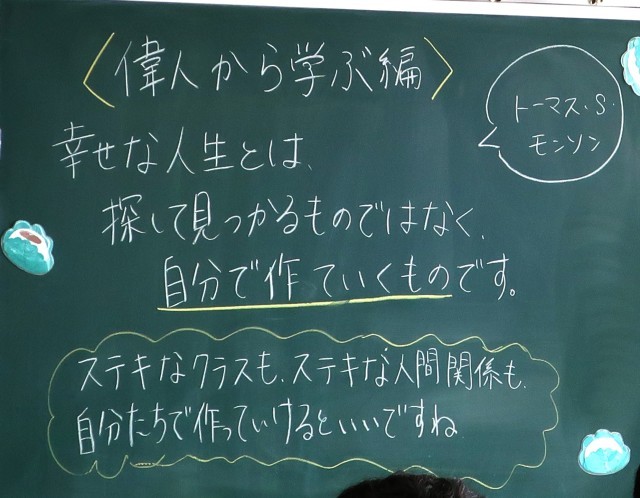 〈偉人から学ぶ編〉
トーマス・S・
モンソン
幸せな人生とは、
探して見つかるものではなく、
自分で作ていくものです。
ステキなクラスも、ステキな人間関係も、
自分たちで作っていけるといいですね